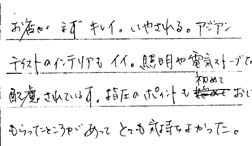 お店が まず キレイ。いやされる。アジアン
テイストのインテリアも イイ。照明や電気ストーブで
配慮されています。指圧のポイントも 初めて おし
もらったところがあって とても気持ちよかった。